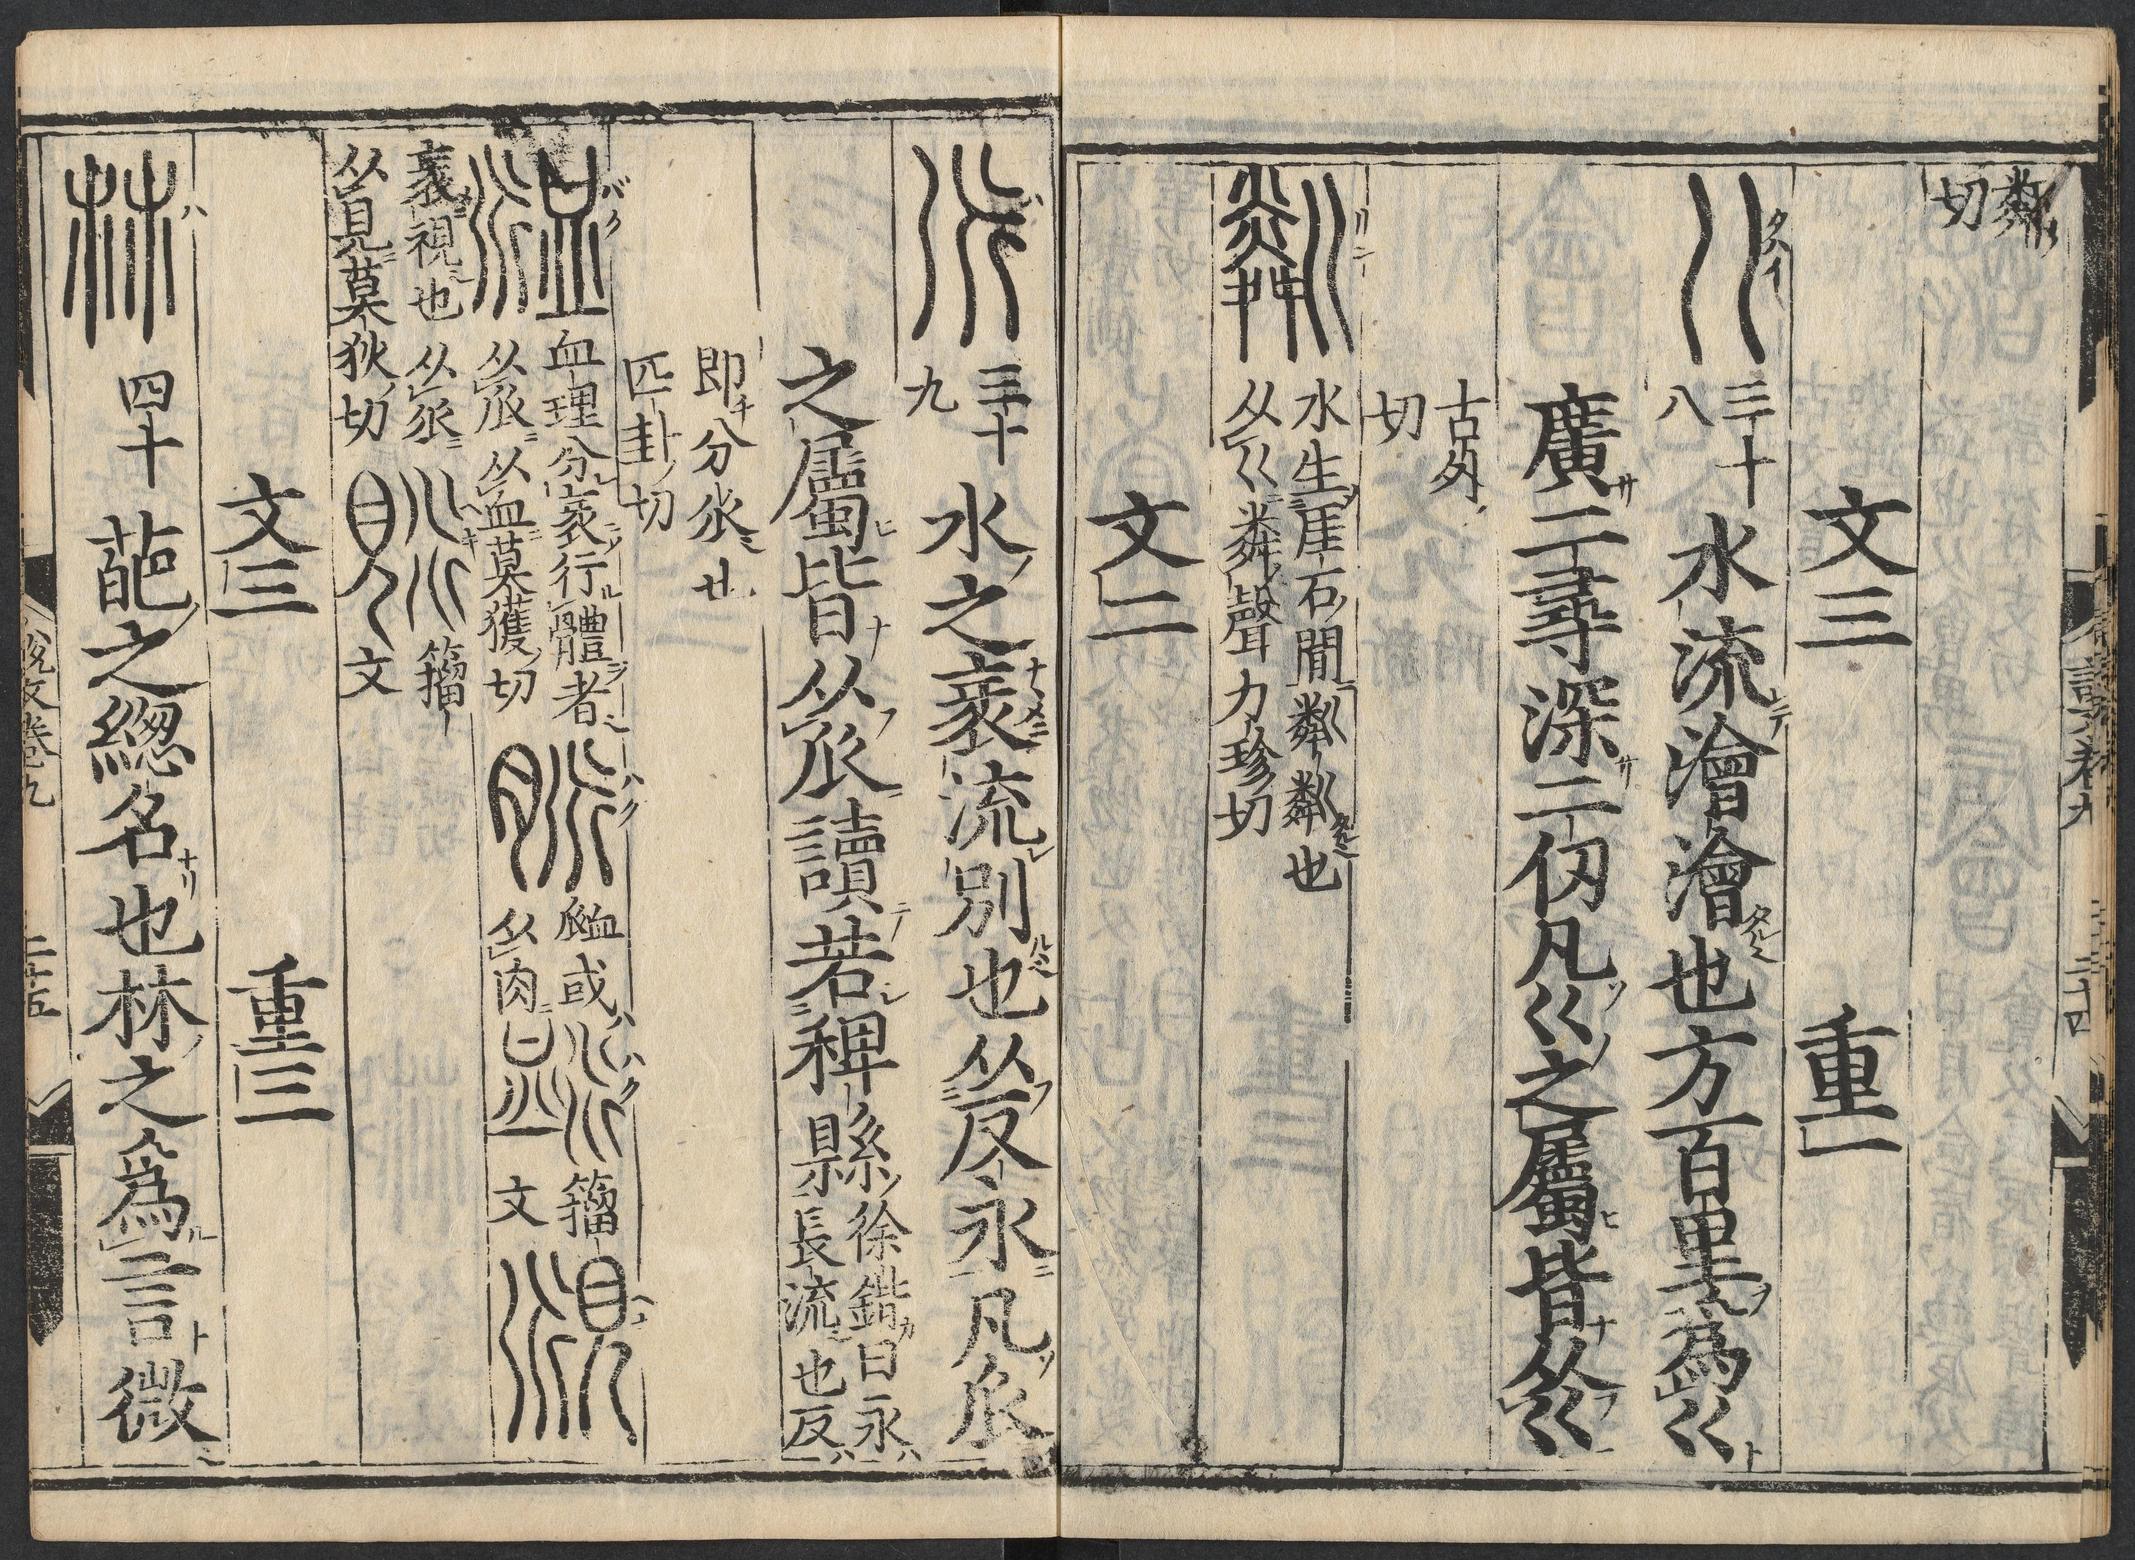 粦
切
文三 重一
三十
八
水流澮澮也方百里爲巜
廣二尋深二仞凡巜之屬皆从巜
古外
切
水生厓石間粼粼也
从巜粦聲力珍切
文二
三十
九
水之衺流別也从反永凡𠂢
之屬皆从𠂢讀若稗縣徐鍇曰永
長流也反
即分𠂢也
匹卦切
血理分衺行體者
从𠂢从血莫獲切
𧖴或
从肉
籒
文
衺視也从𠂢
从見莫狄切
籒
文
文三 重三
四十 葩之緫名也𣏟之爲言微
說文卷九 二十四
說文卷九 二十五